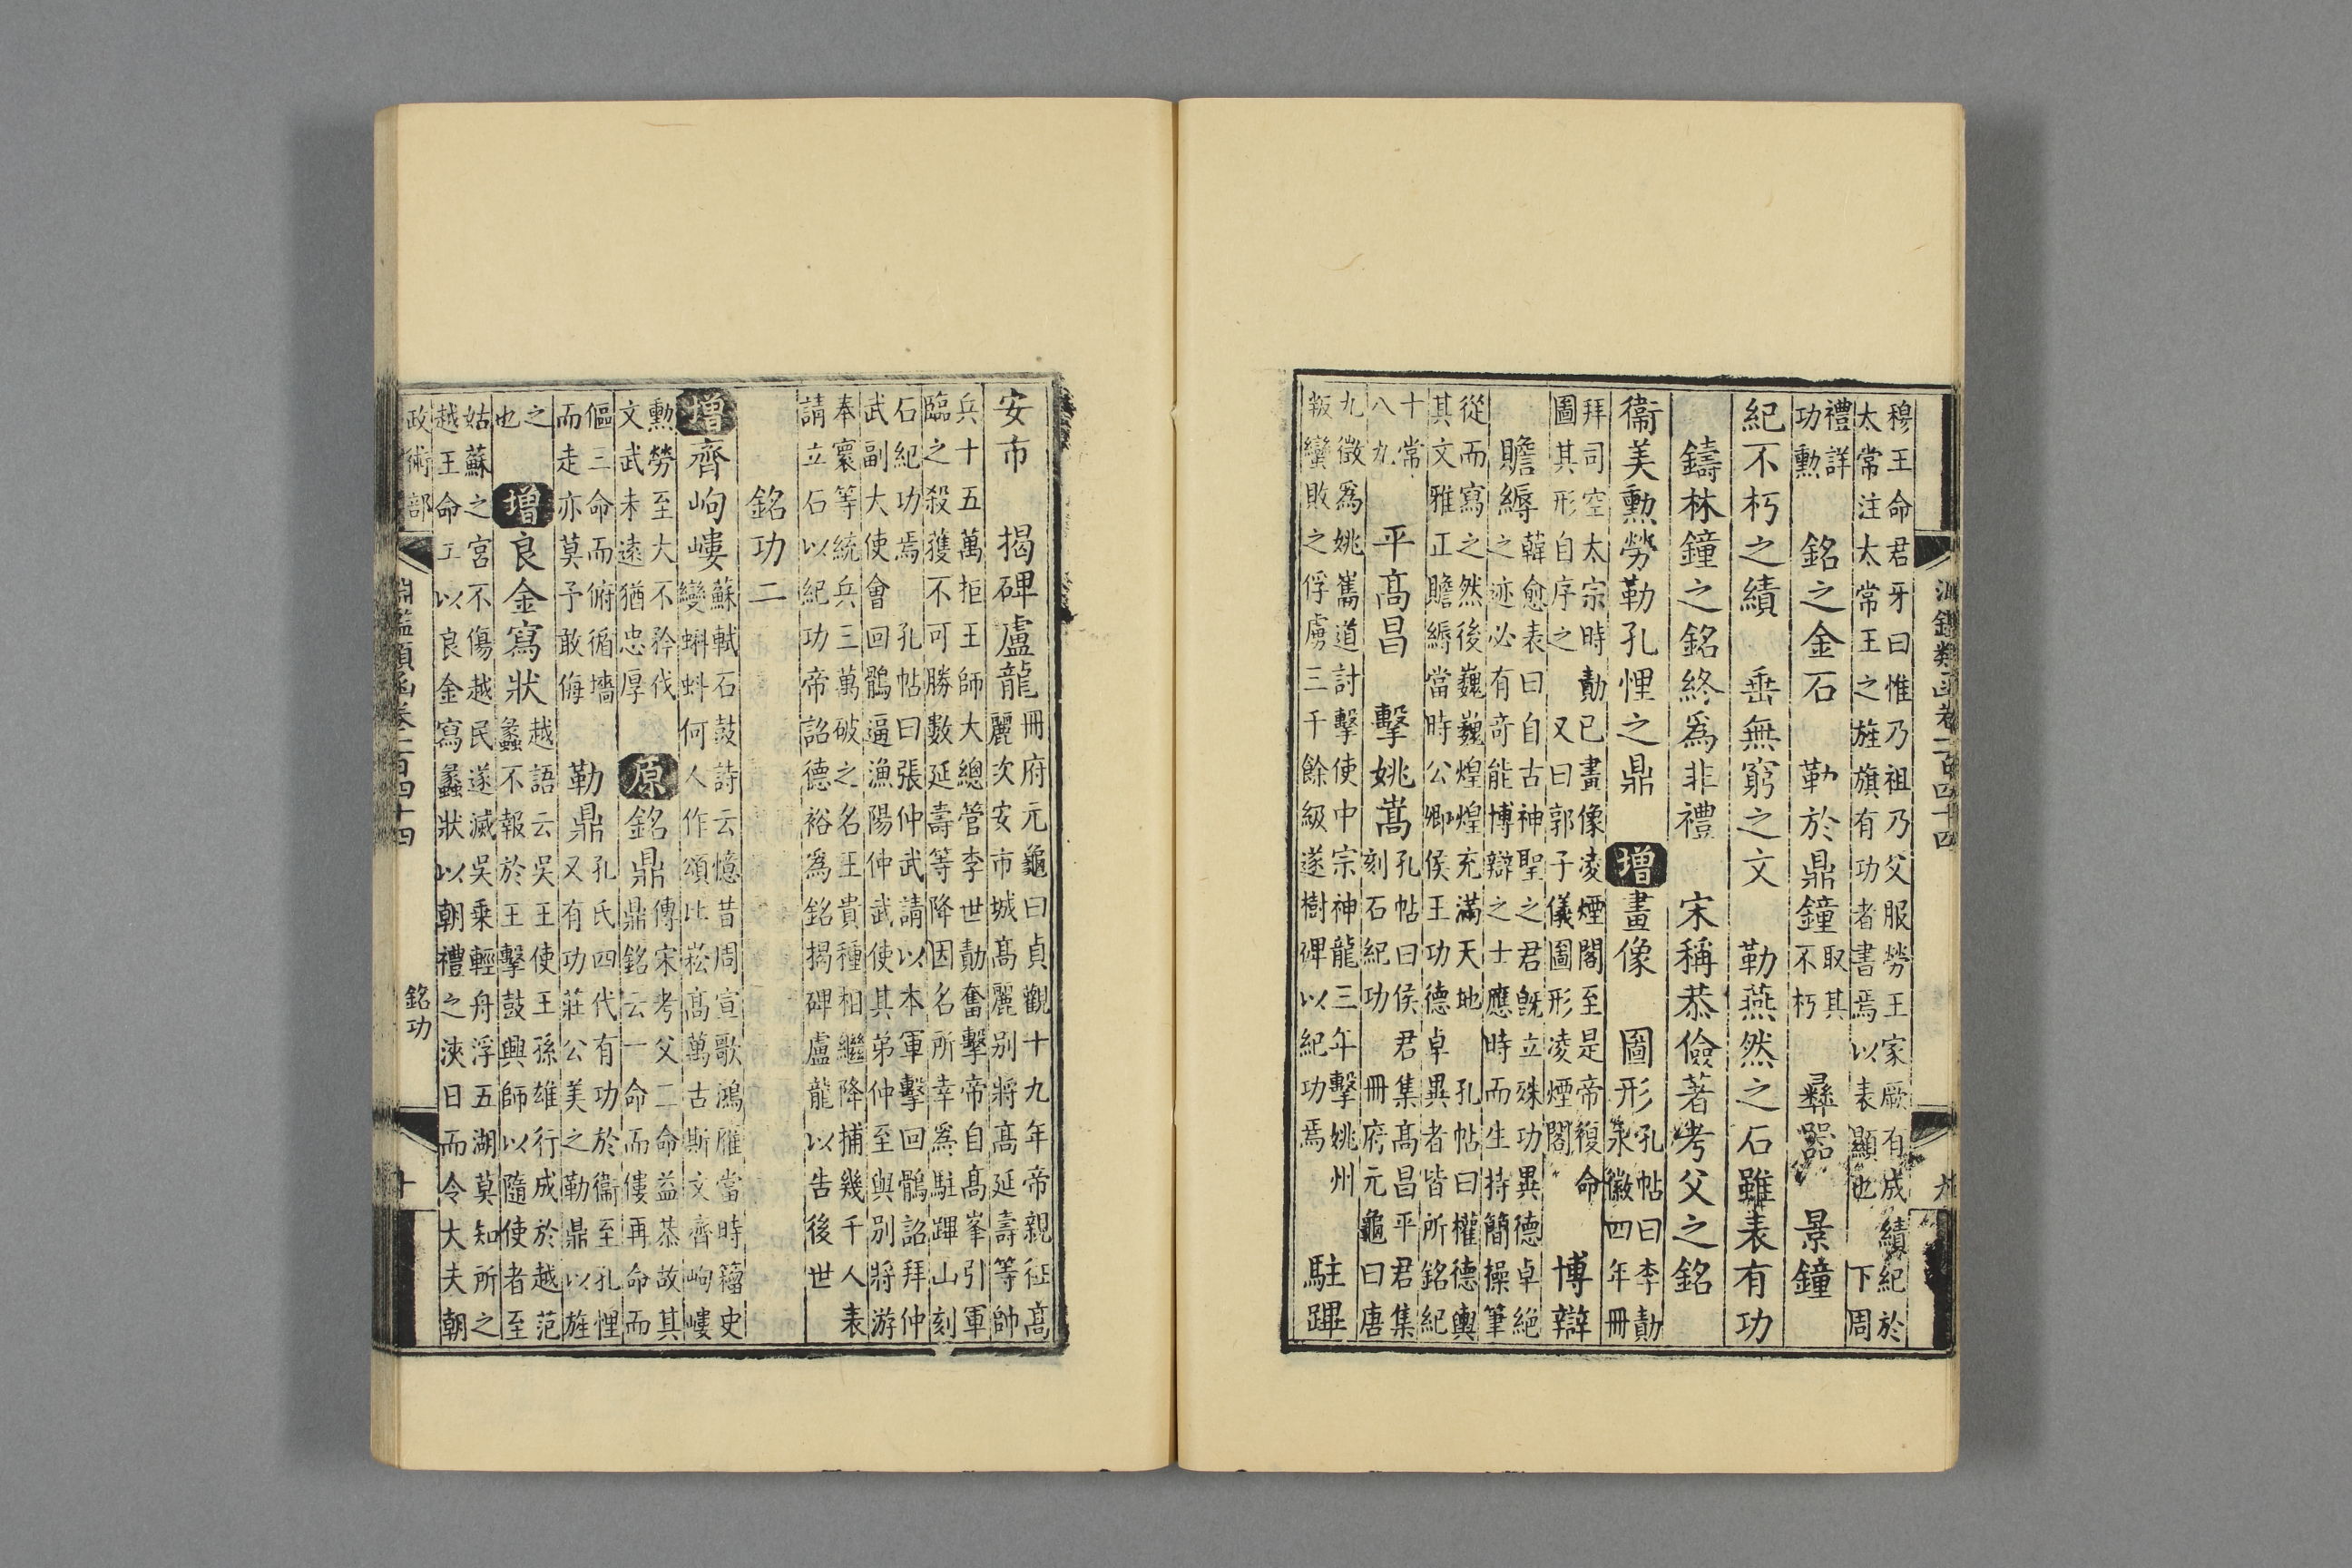 淵鑑類函卷一百四十四
穆王命君牙曰惟乃祖乃父服勞王家厥有成績紀於
太常注太常王之旌旗有功者書焉以表顯也 下周
禮詳
功勳
銘之金石 勒於鼎鐘
取其
不朽
彝器 景鐘
紀不朽之績 垂無窮之文 勒燕然之石雖表有功
鑄林鐘之銘終爲非禮 宋稱恭儉著考父之銘
衞美勲勞勒孔悝之鼎 增畫像 圖形
孔帖曰李勣
永徽四年冊
拜司空太宗時勣已畫像凌煙閣至是帝複命
圖其形自序之 又曰郭子儀圖形凌煙閣
博辯
贍縟
韓愈表曰自古神聖之君旣立殊功異德卓絕
之迹必有奇能博辯之士應時而生持簡操筆
從而寫之然後巍巍煌煌充滿天地 孔帖曰權德輿
其文雅正贍縟當時公卿侯王功德卓異者皆所銘紀
十常
八九
平髙昌 擊姚嶲
孔帖曰侯君集髙昌平君集
刻石紀功 冊府元龜曰唐
九徵爲姚嶲道討擊使中宗神龍三年擊姚州
叛蠻敗之俘虜三千餘級遂樹碑以紀功焉
駐蹕
安市 揭碑盧龍
冊府元龜曰貞觀十九年帝親征髙
麗次安市城髙麗别將髙延壽等帥
兵十五萬拒王師大總管李世勣奮擊帝自髙峯引軍
臨之殺獲不可勝數延壽等降因名所幸爲駐蹕山刻
石紀功焉 孔帖曰張仲武請以本軍擊回鶻詔拜仲
武副大使會回鶻逼漁陽仲武使其弟仲至與别將游
奉寰等統兵三萬破之名王貴種相繼降捕幾千人 表
請立石以紀功帝詔德裕爲銘揭碑盧龍以告後世
銘功二
增齊岣嶁
蘇軾石鼓詩云憶昔周宣歌鴻雁當時籀史
變蝌蚪何人作頌比崧髙萬古斯文齊岣嶁
勲勞至大不矜伐
文武未遠猶忠厚
原銘鼎
傳宋考父二命益恭故其
鼎銘云一命而僂再命而
傴三命而俯循墻
而走亦莫予敢侮
勒鼎
孔氏四代有功於衞至孔悝
又有功莊公美之勒鼎以旌
之
也
增良金寫狀
越語云吳王使王孫雄行成於越范
蠡不報於王擊鼓興師以隨使者至
姑蘇之宮不傷越民遂滅吳乗輕舟浮五湖莫知所之
越王命工以良金寫蠡狀以朝禮之浹日而令大夫朝
政術部
銘功
十